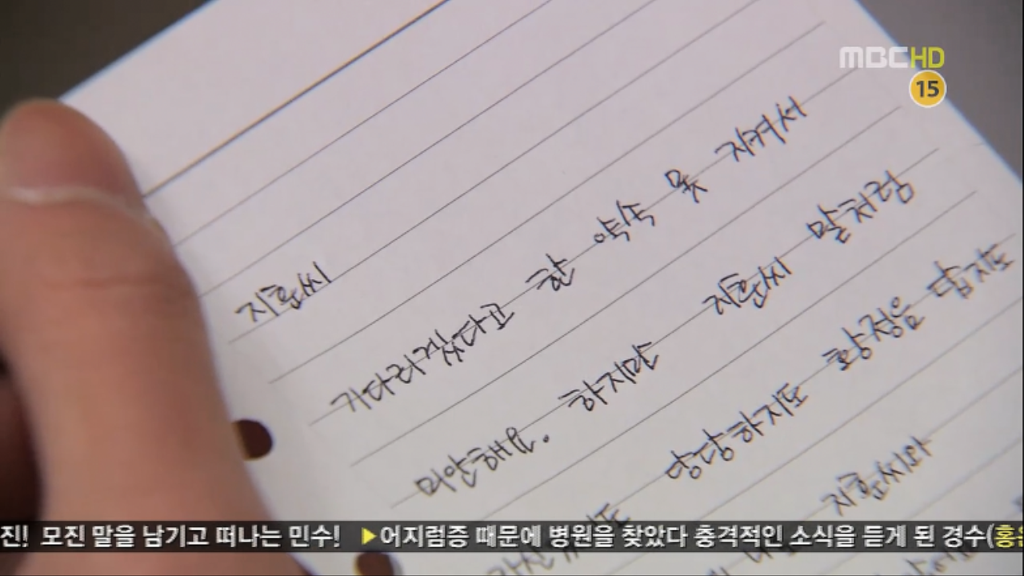 MBC HD
15
지훈씨
기다리겠다고 한 약속 못 지켜서
미안해요. 하지만 지훈씨 말처럼
당당하지도 황정음 답지도
지훈씨와
진! 모진 말을 남기고 떠나는 민수! ▶어지럼증 때문에 병원을 찾았다 충격적인 소식을 듣게 된 경수(홍은